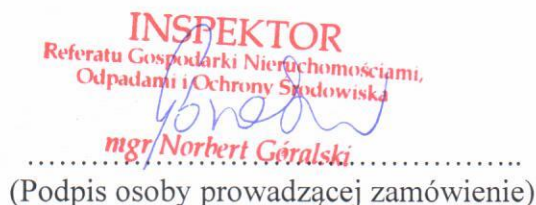 INSPEKTOR
Referatu Gospodarki Nieruchomościami,
Odpadami i Ochrony Środowiska
mgr Norbert Góralski
(Podpis osoby prowadzącej zamówienie)